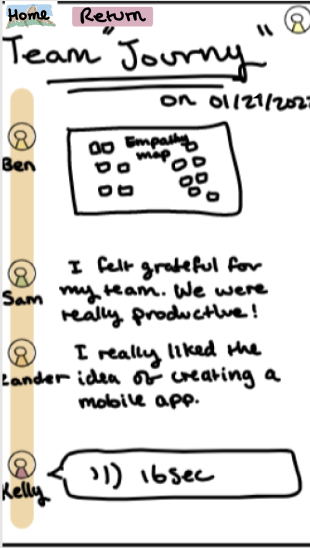 Home Return
Team "Journy"
on 01/21/202
Empathy
map
Ben
I felt grateful for
my team. We were
really productive!
Sam
I really liked the
idea of creating a
mobile app.
Lander
16sec
Kelly